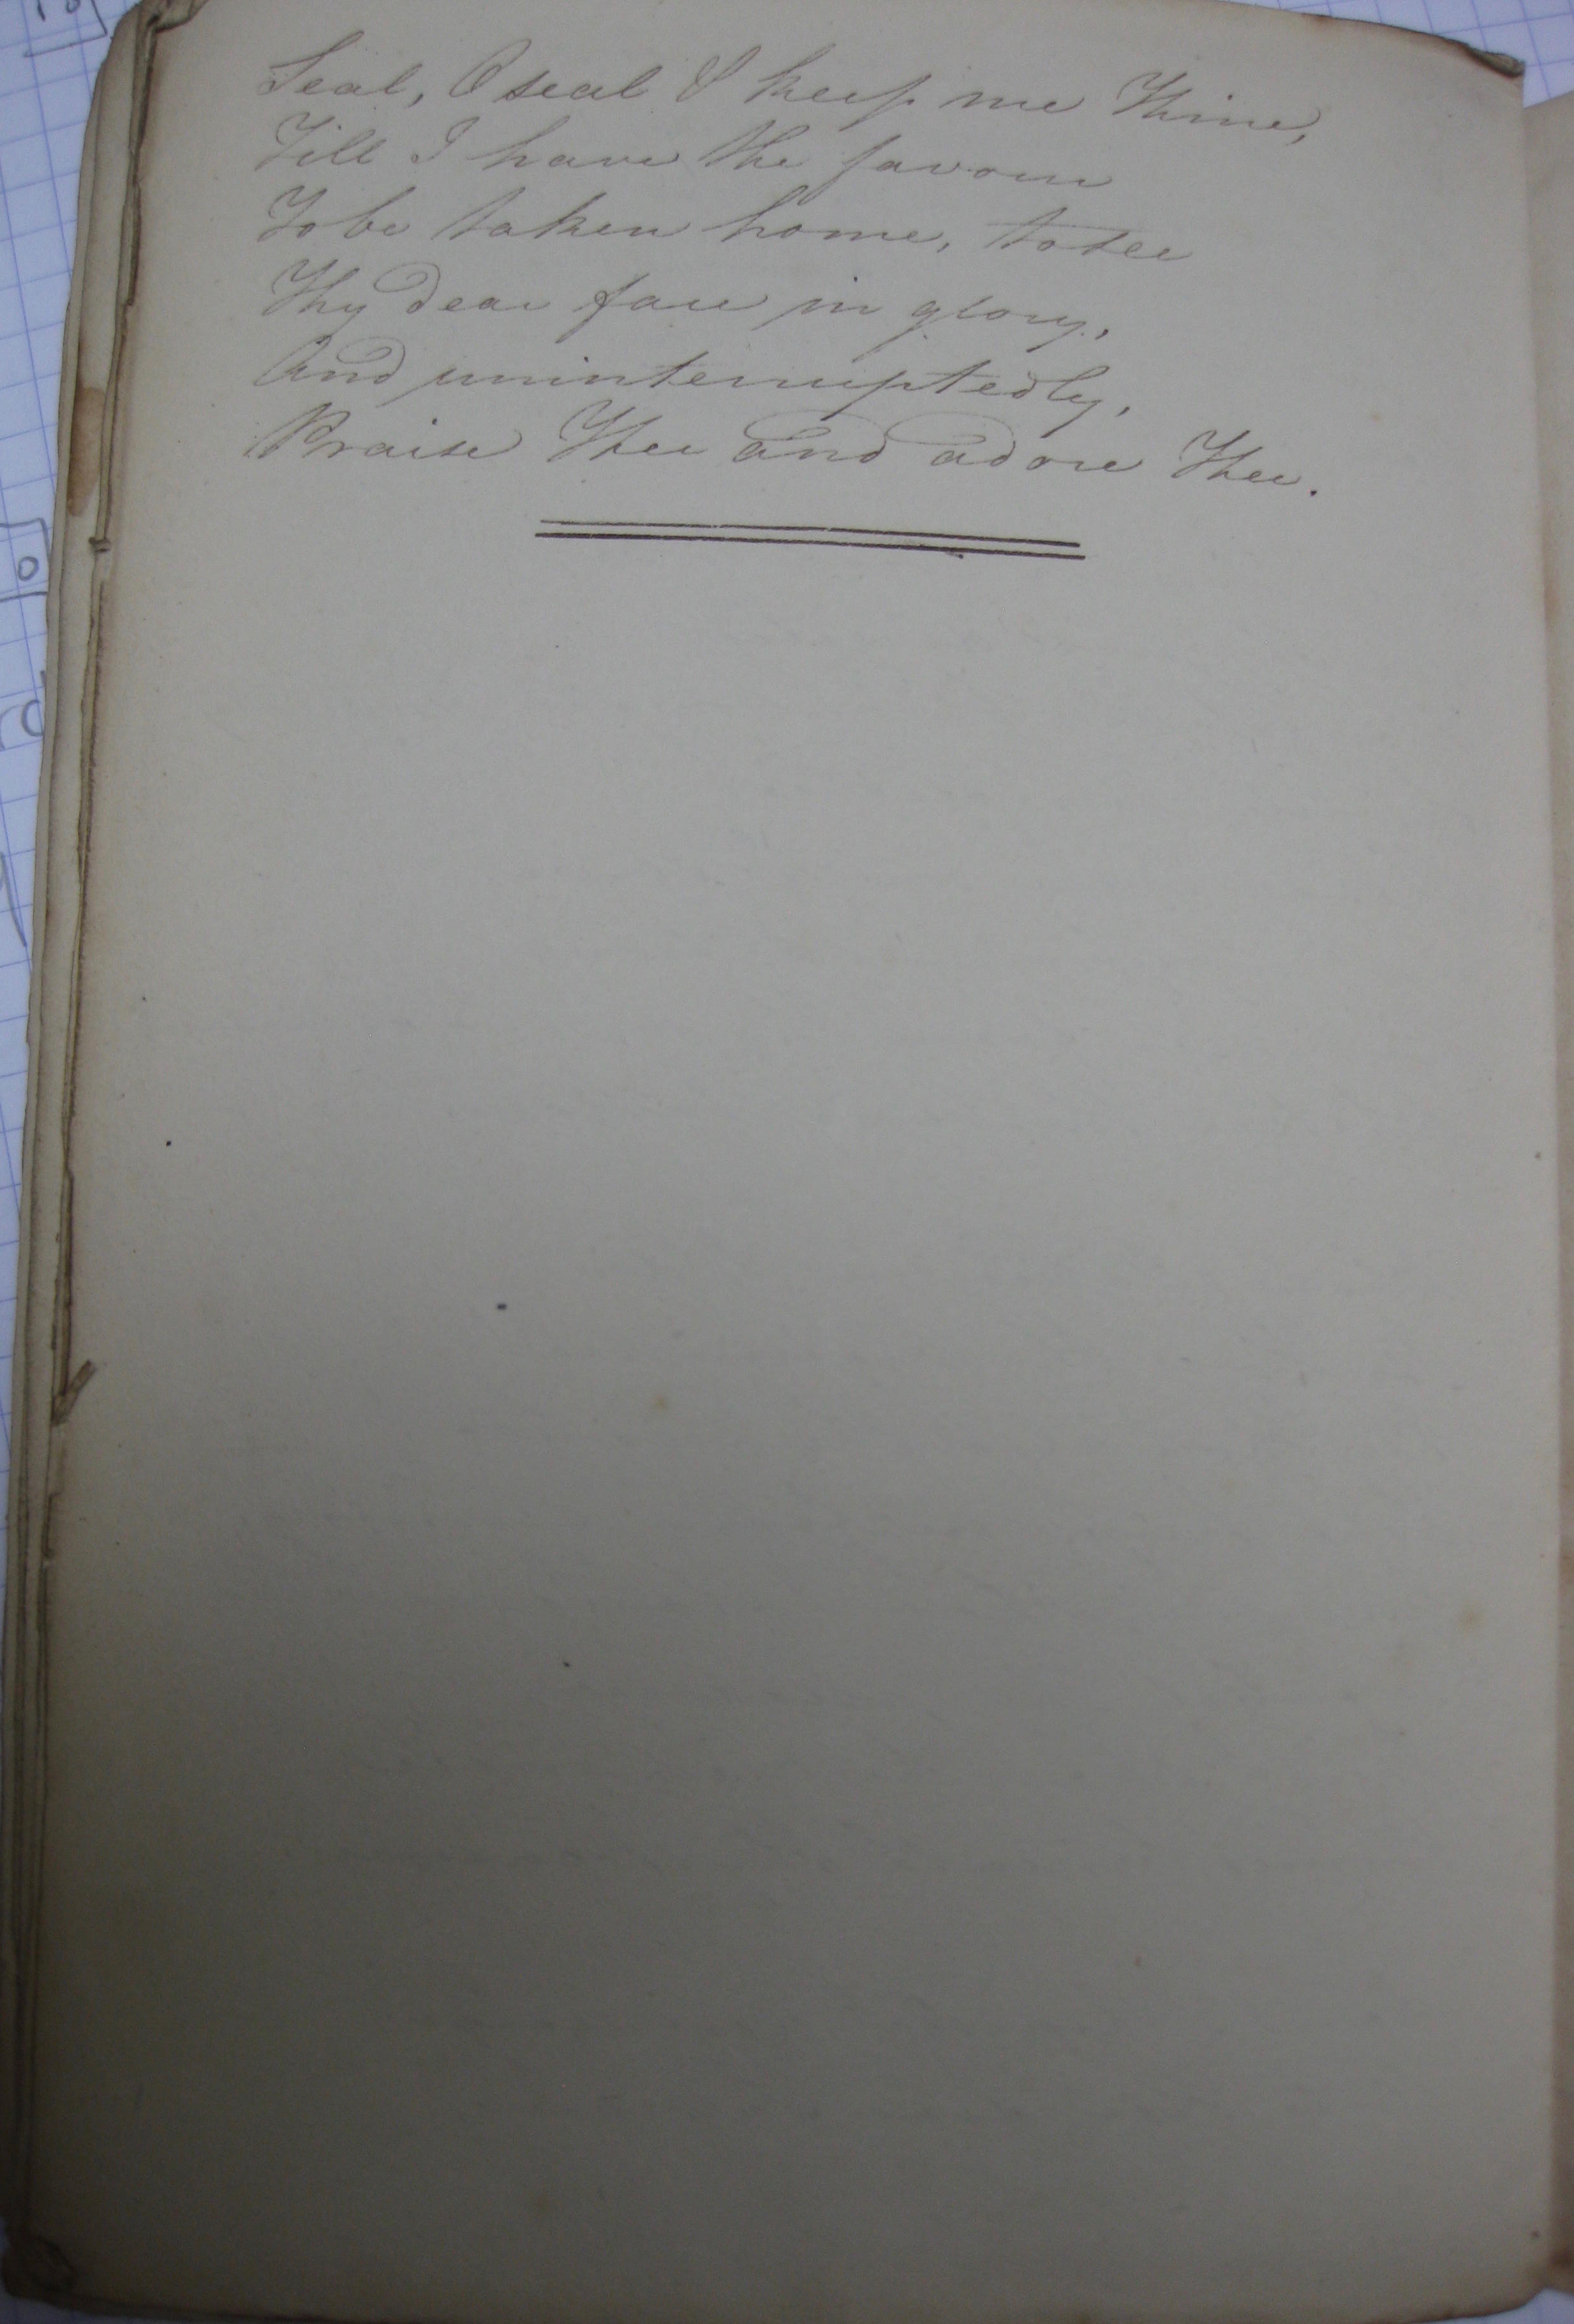 Seal, O seal & keep me Thine,
Till I have the favour
To be taken home, to see
Thy dear face in glory,
And uninterruptedly,
Praise Thee and adore Thee.